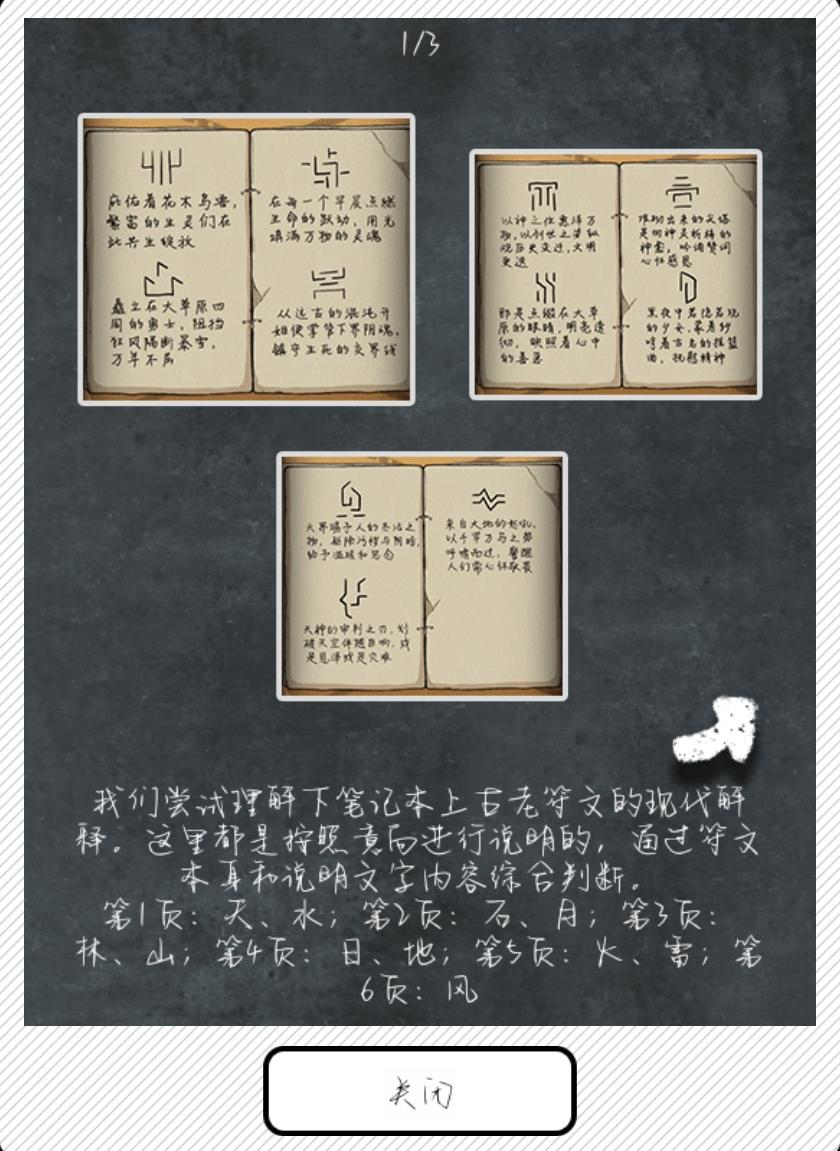 1/3
庇佑着花木鸟兽,
繁富的生灵们在
此共生绽放
矗立在大草原四
周的勇士，阻挡
狂风隔断暴雪，
万年不屑
在每一个早晨点燃
生命的跃动，用光
填满万物的灵魂
从远古的混沌开
始便掌管下界阴魂，
镇守生死的交界线
以神之位惠泽万
物，以创世之姿纵
观历史变迁，文明
更迭
那是点缀在大草
原的眼睛，明亮透
彻，映照着心中
的善恶
堆砌出来的尖塔
是向神灵祈祷的
神龛，吟诵赞词
心怀感恩
黑夜中若隐若现
的少女，蒙着纱
哼着古老的摇篮
曲，抚慰精神
天界赐予人的圣洁之
物，驱除污秽与阴暗，
给予温暖和思念
天神的审判之刃，划
破天空伴随巨响，或
是恩泽或是灾难
来自大地的怒吼，
以千军万马之势
呼啸而过，警醒
人们需心怀敬畏
我们尝试理解下笔记本上古老符文的现代解
释。这里都是按照意向进行说明的，通过符文
本身和说明文字内容综合判断。
第1页：天、水；第2页：石、月；第3页：
林、山；第4页：日、地；第5页：火、雷；第
6页：风
关闭